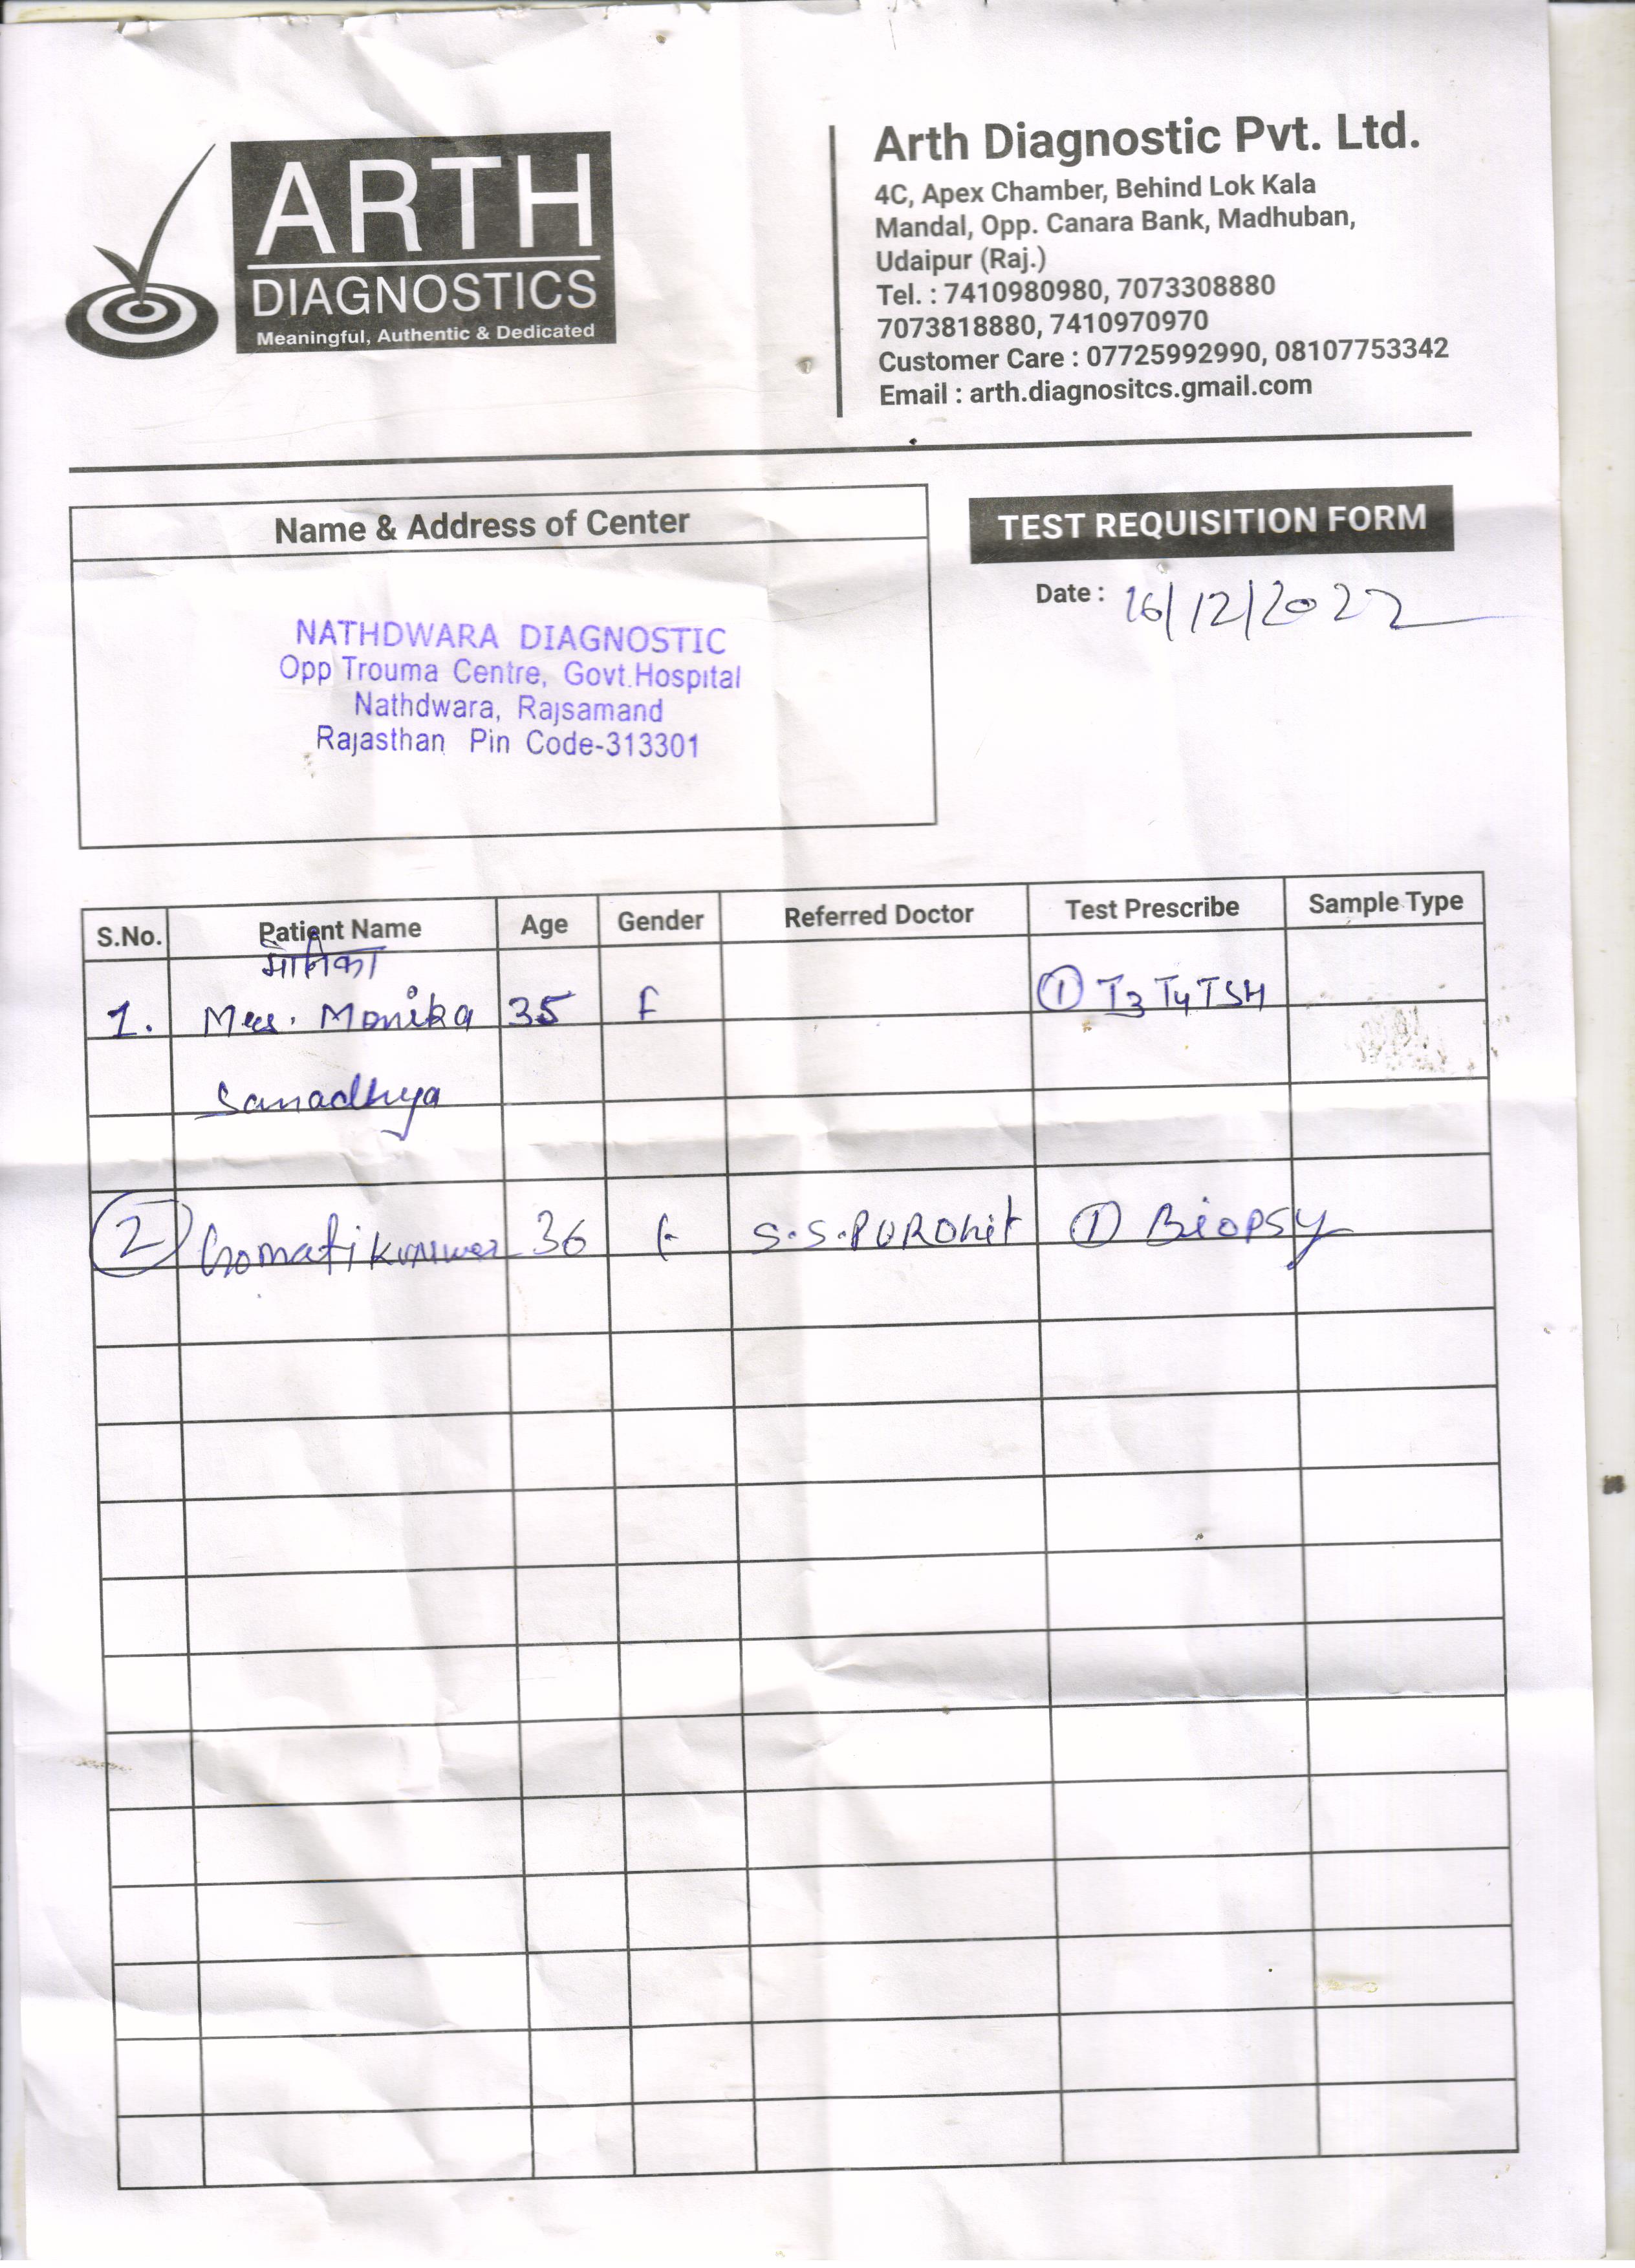 ARTH
DIAGNOSTICS
Meaningful, Authentic & Dedicated
Arth Diagnostic Pvt. Ltd.
4C, Apex Chamber, Behind Lok Kala
Mandal, Opp. Canara Bank, Madhuban,
Udaipur (Raj.)
Tel. : 7410980980, 7073308880
7073818880, 7410970970
Customer Care : 07725992990, 08107753342
Email : arth.diagnositcs.gmail.com
Name & Address of Center
NATHDWARA DIAGNOSTIC
Opp Trouma Centre, Govt.Hospital
Nathdwara, Rajsamand
Rajasthan Pin Code-313301
TEST REQUISITION FORM
Date : 16/12/2022
S.No. Patient Name Age Gender Referred Doctor Test Prescribe Sample Type
मोनिका
1. Mrs. Monika 35 F ① T3 T4 TSH
Sanadhya
② Gomati Kunwar 36 F S.S.PUROhit ① Biopsy